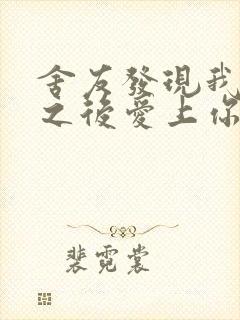 舍友發現我
之後愛上你
裴霓裳